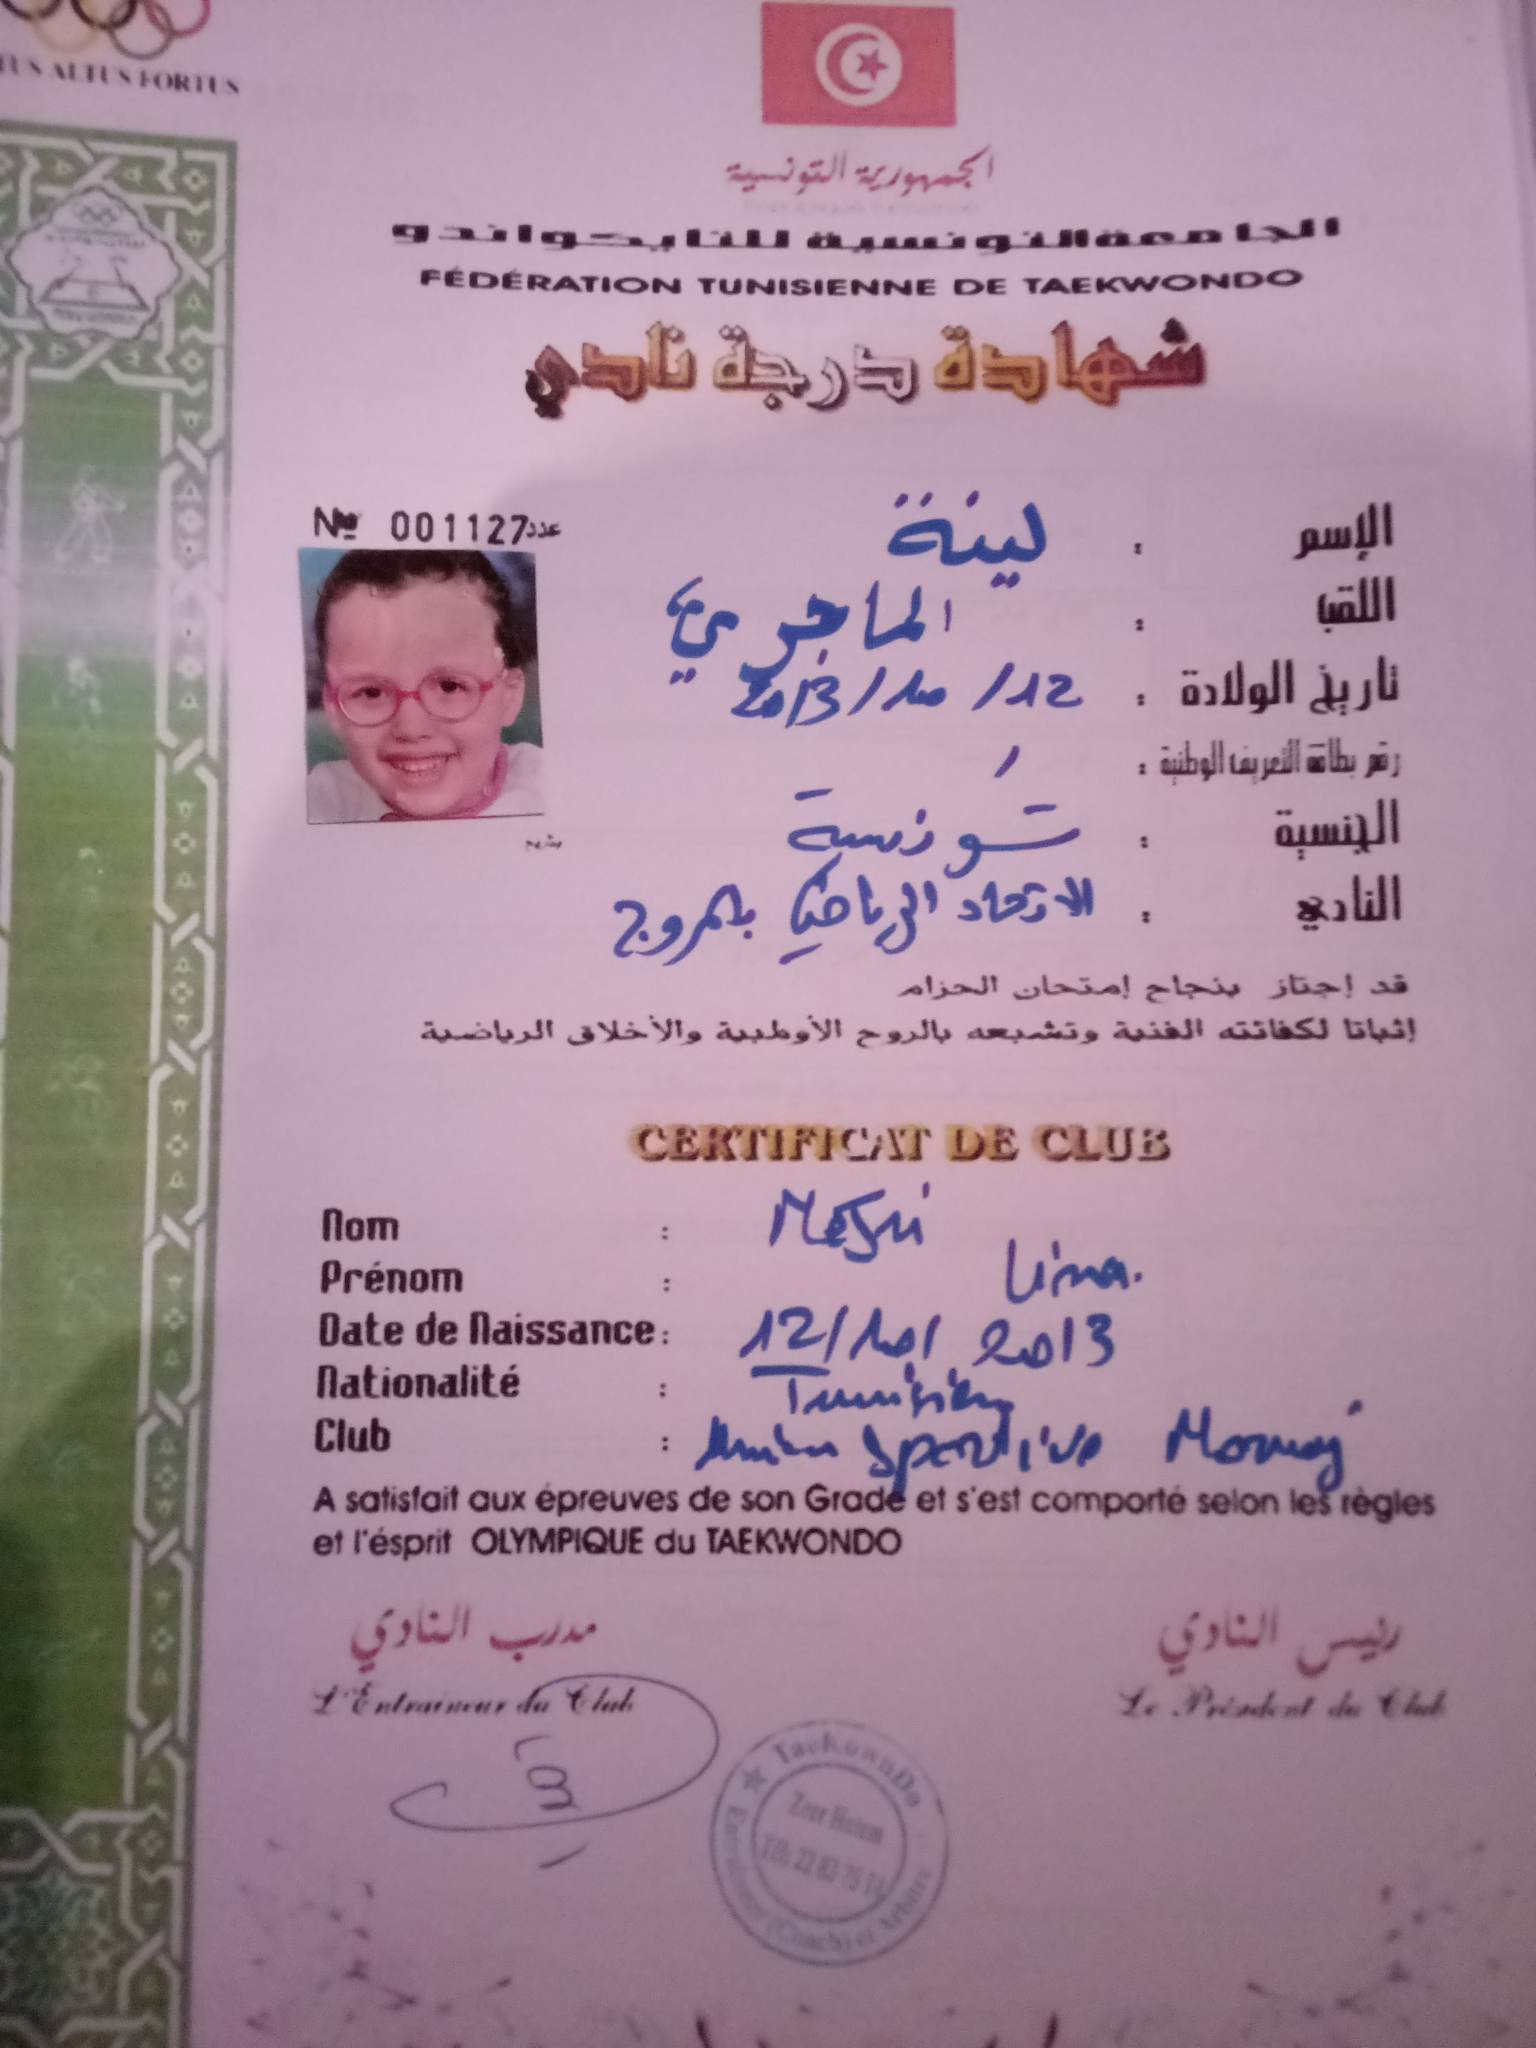 ALTUS FORTUS
الجمهورية التونسية
الجامعة التونسية للتايكواندو
FÉDÉRATION TUNISIENNE DE TAEKWONDO
شهادة درجة نادي
Nº 001127 عدد
الإسم : لينة
اللقب : الماجري
تاريخ الولادة : 12/10/2013
رقم بطاقة التعريف الوطنية :
الجنسية : تونسية
النادي : الاتحاد الرياضي بالمروج
قد إجتاز بنجاح إمتحان الحزام
إثباتا لكفائته الفنية وتشبعه بالروح الأولمبية والأخلاق الرياضية
CERTIFICAT DE CLUB
Nom : Mejri
Prénom : Lina.
Date de Naissance : 12/10/2013
Nationalité : Tunisien
Club : Sportive Mourouj
A satisfait aux épreuves de son Grade et s'est comporté selon les règles
et l'ésprit OLYMPIQUE du TAEKWONDO
مدرب النادي رئيس النادي
L'Entraineur du Club Le Président du Club
TaeKownDo
Entraineur (Coach) et Arbitre